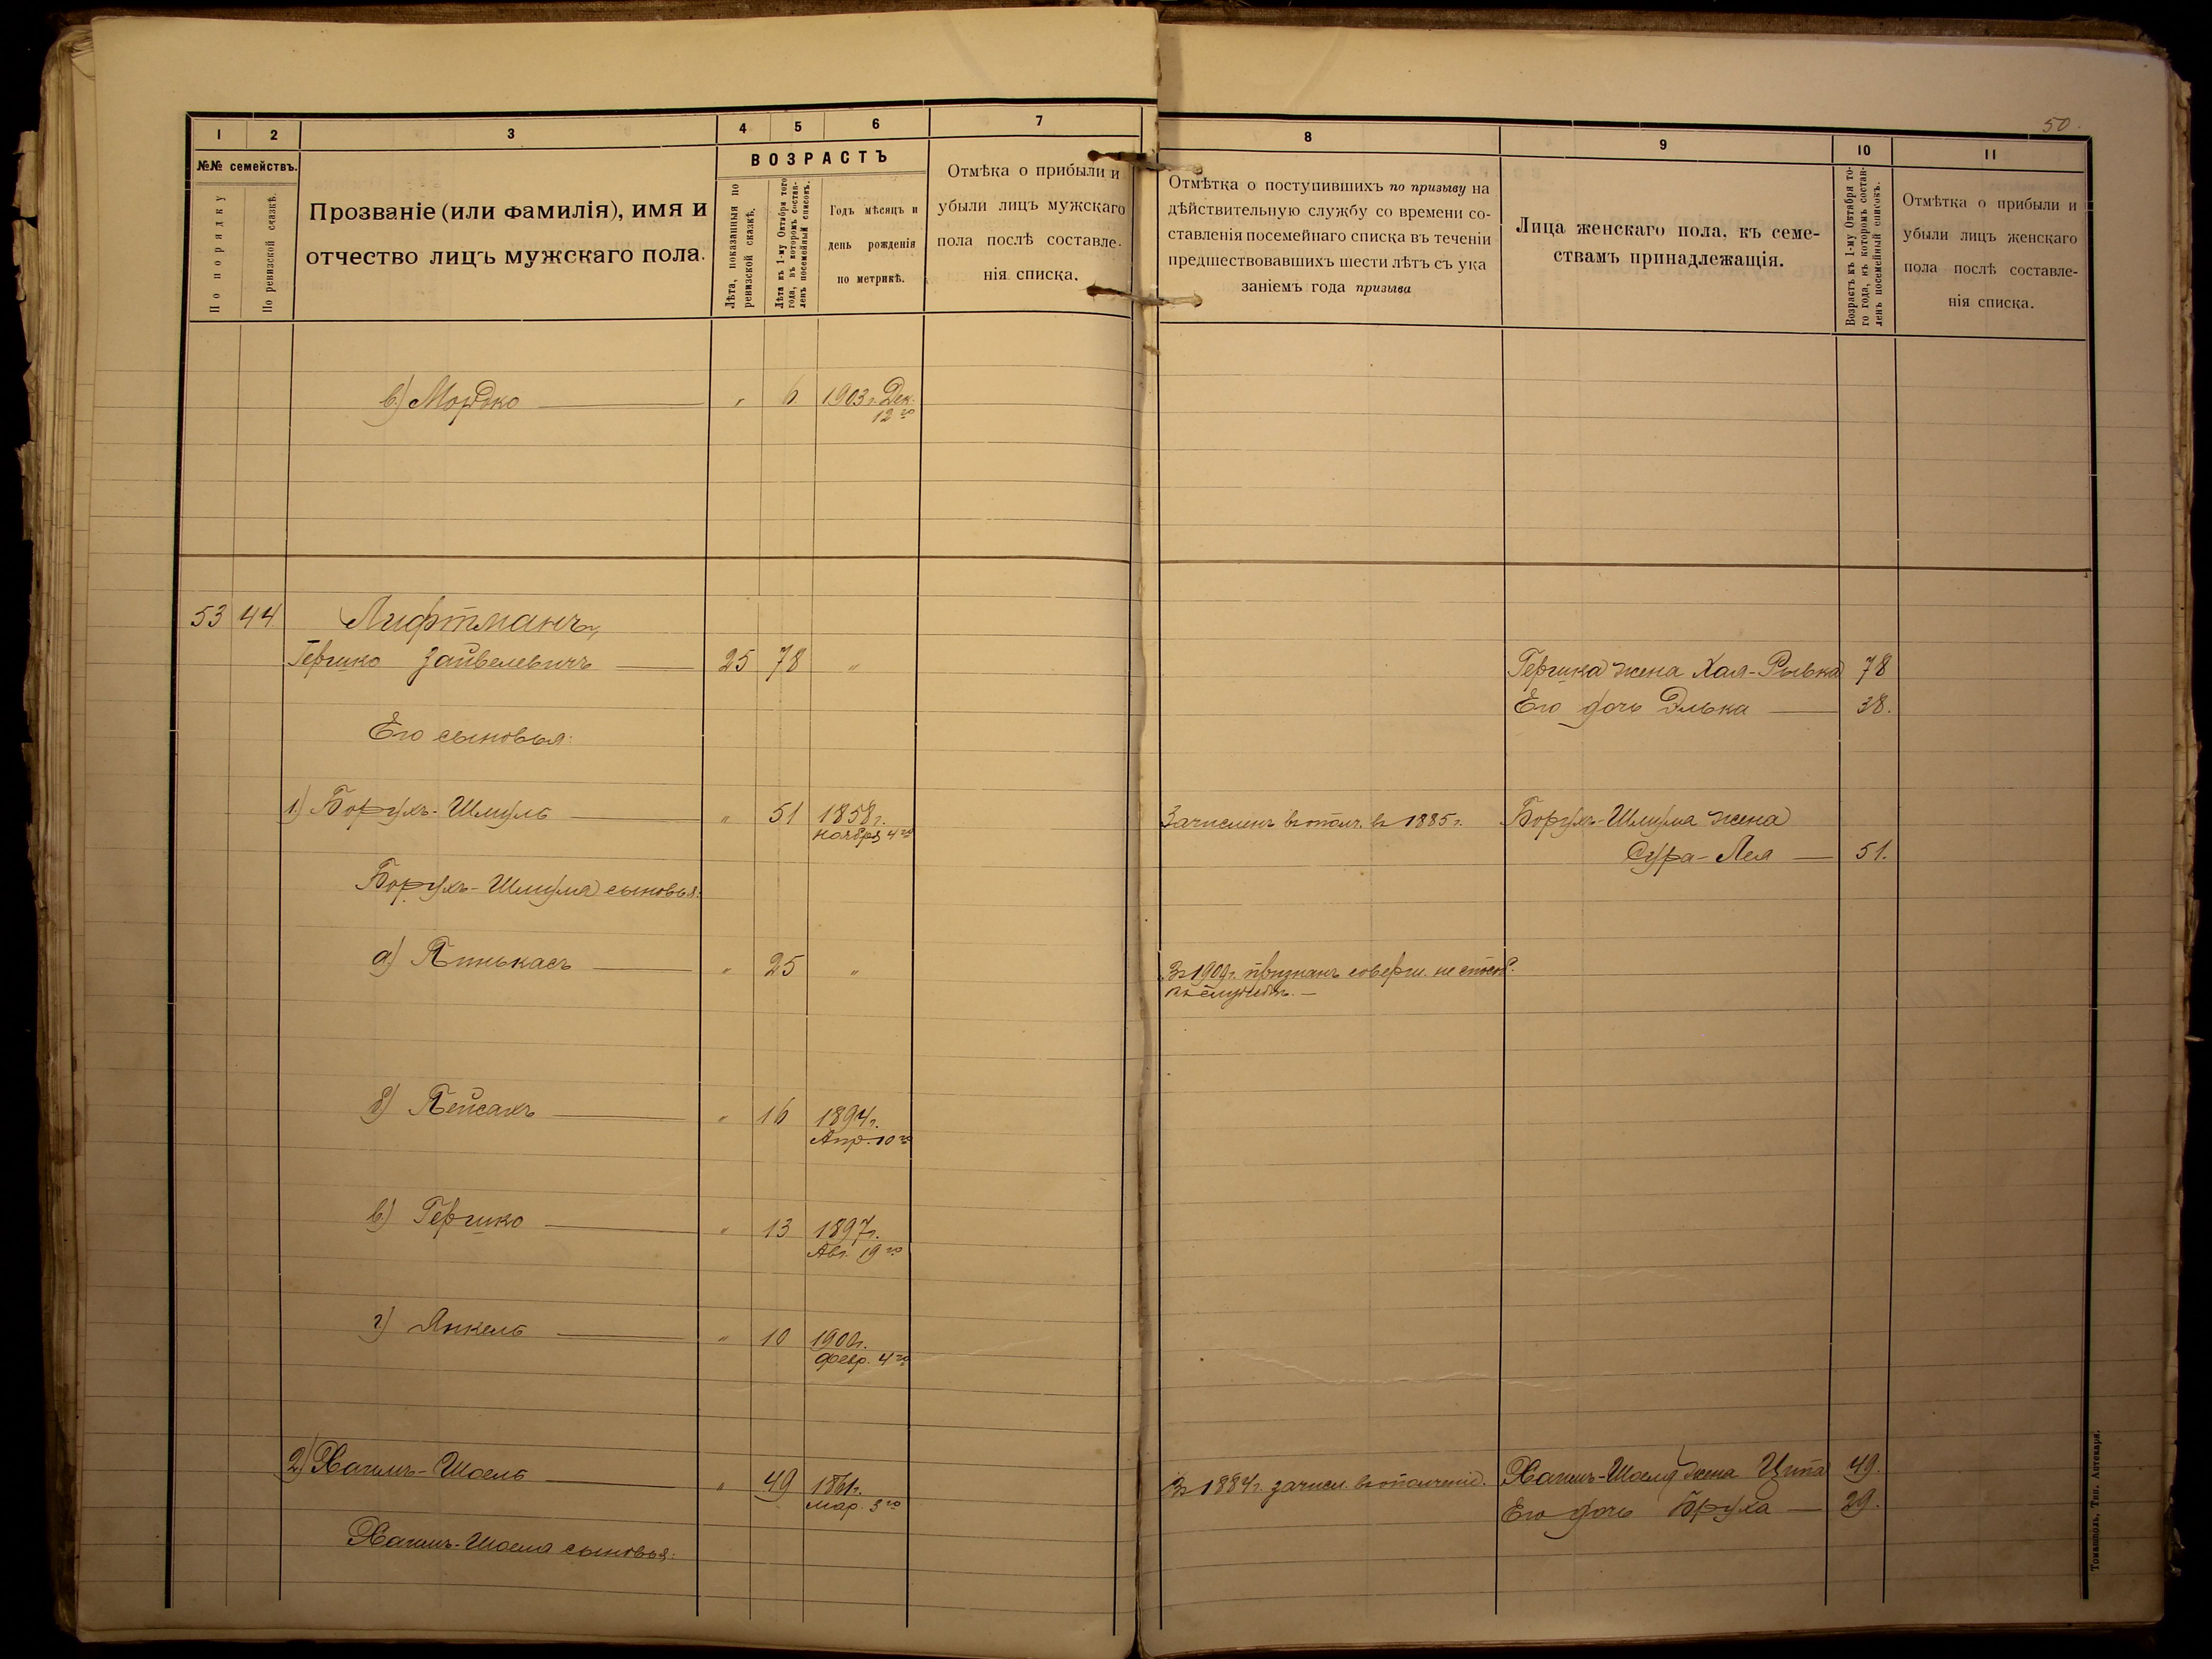 50.
1 2 3 4 5 6 7 8 9 10 11
№№ семействъ.
По порядку
По ревизской сказкѣ.
Прозваніе (или фамилія), имя и
отчество лицъ мужскаго пола.
ВОЗРАСТЪ
Лѣта, показанныя по
ревизской сказкѣ.
Лѣта къ 1-му Октября того
года, въ которомъ состав-
ленъ посемейный списокъ.
Годъ мѣсяцъ и
день рожденія
по метрикѣ.
Отмѣка о прибыли и
убыли лицъ мужскаго
пола послѣ составле-
нія списка.
Отмѣтка о поступившихъ по призыву на
дѣйствительную службу со времени со-
ставленія посемейнаго списка въ теченіи
предшествовавшихъ шести лѣтъ съ ука
заніемъ года призыва
Лица женскаго пола, къ семе-
ствамъ принадлежащія.
Возрастъ къ 1-му Октября то-
го года, къ которомъ состав-
ленъ посемейный списокъ.
Отмѣтка о прибыли и
убыли лицъ женскаго
пола послѣ составле-
нія списка.
в) Мордко — " 6 1903 г. Дек.
12го
53 44 Лифтманъ,
Гершко Зайвелевичъ — 25 78 " Гершка жена Хая-Рывка 78
Его дочь Элька — 38.
Его сыновья:
1) Борухъ-Шмуль — " 51 1858 г. Зачисленъ въ ополч. въ 1885 г. Борухъ-Шмуля жена
ноября 4го
Сура-Лея — 51.
Борухъ-Шмуля сыновья:
а) Пинькасъ — " 25 " Въ 1909 г. признанъ соверш. не способ.
къ службѣ. —
б) Пейсахъ — " 16 1894 г.
Апр. 10го
в) Гершко — " 13 1897 г.
Авг. 19го
г) Янкель — " 10 1900 г.
февр. 4го
2) Хаимъ-Шоель — " 49 1861 г. Въ 1884 г. зачисл. въ ополченіе. Хаимъ-Шоеля жена Ципа 49.
Мар. 3го
Его дочь Бруха — 29.
Хаимъ-Шоеля сыновья:
Томашполь, Тип. Аптекаря.